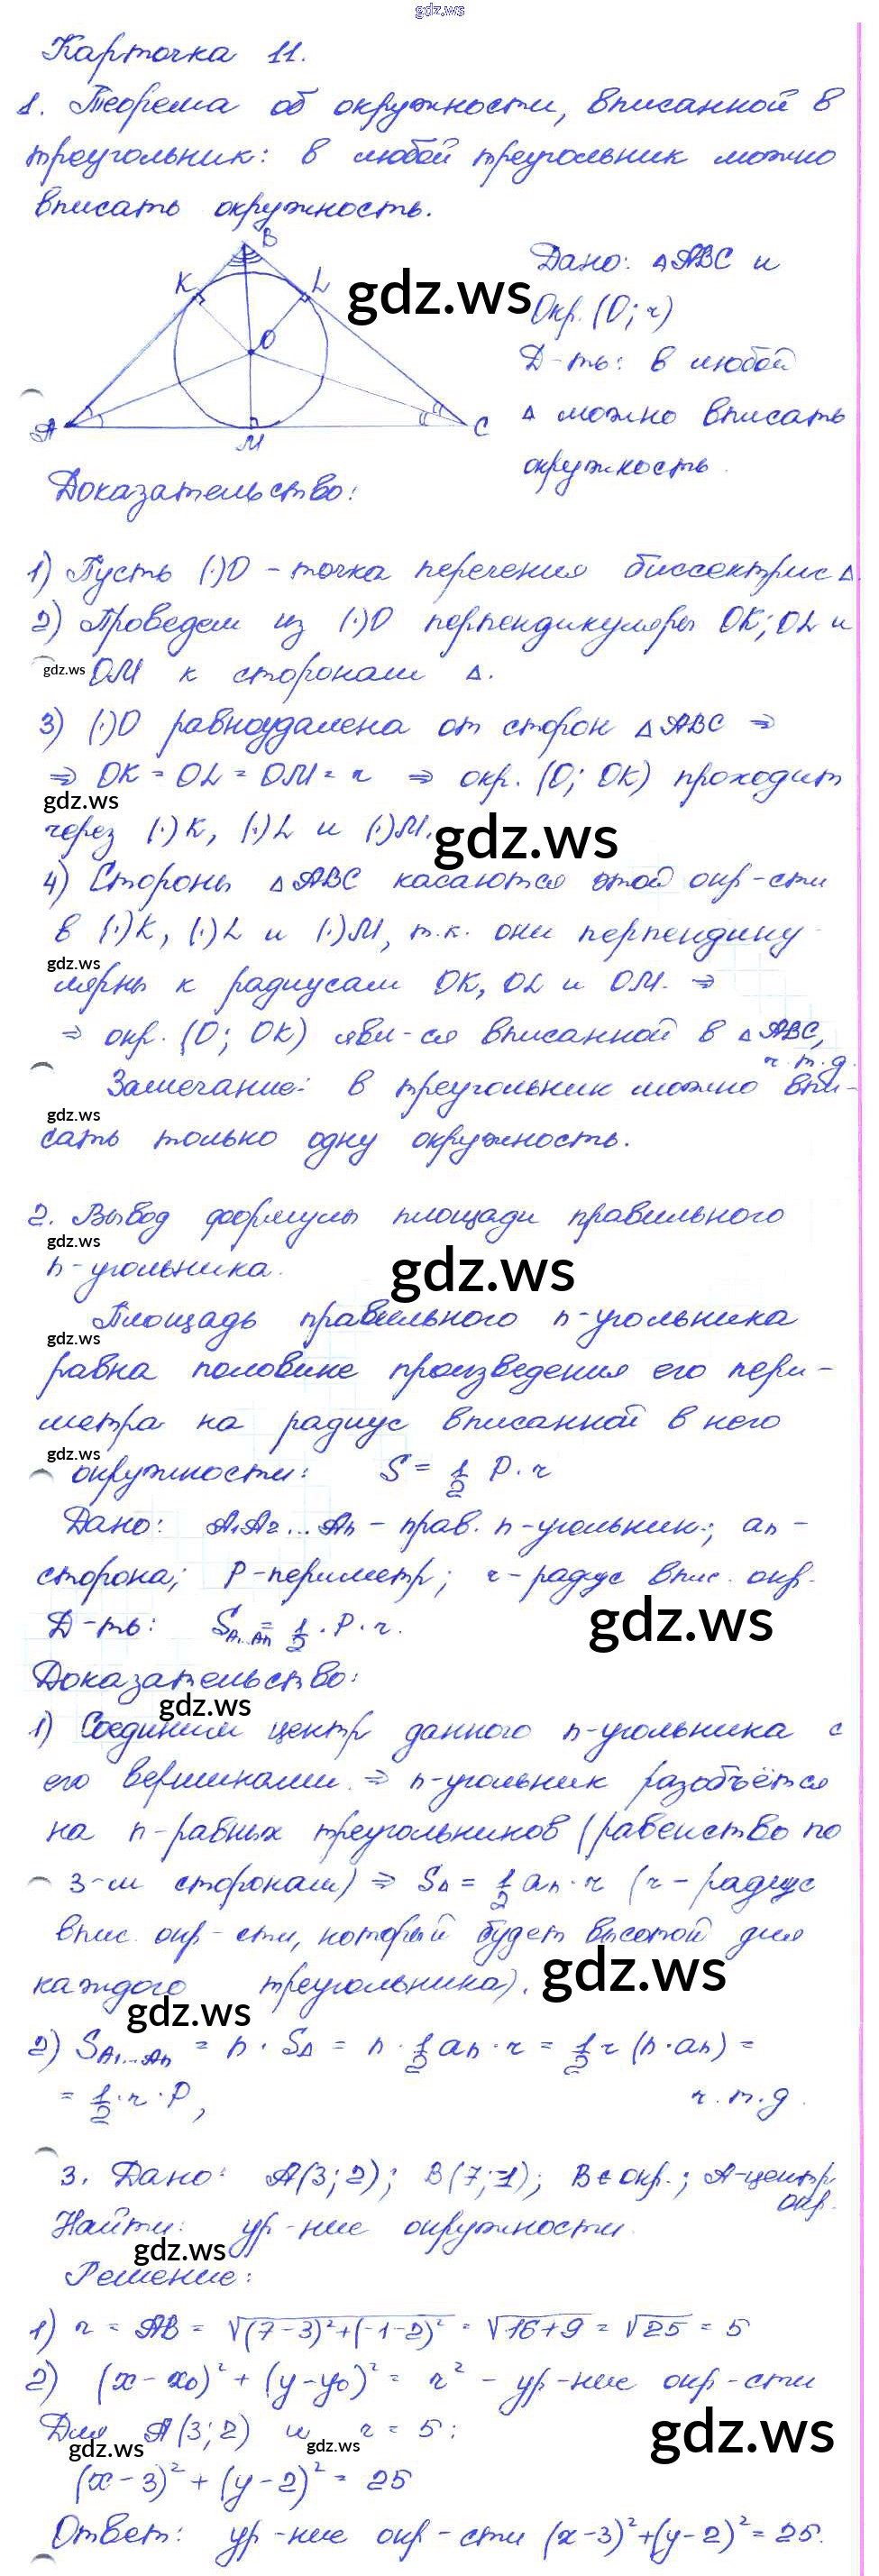 gdz.ws
Карточка 11.
1. Теорема об окружности, вписанной в
треугольник: в любой треугольник можно
вписать окружность.
B
K L
O
A M C
gdz.ws
Дано: △ABC и
Окр. (O; r)
Д-ть: в любой
△ можно вписать
окружность.
Доказательство:
1) Пусть (·)O - точка перечения биссектрис △.
2) Проведем из (·)O перпендикуляры OK; OL и
gdz.ws OM к сторонам △.
3) (·)O равноудалена от сторон △ABC ⇒
⇒ OK = OL = OM = r ⇒ окр. (O; OK) проходит
gdz.ws
через (·)K, (·)L и (·)M. gdz.ws
4) Стороны △ABC касаются этой окр-сти
в (·)K, (·)L и (·)M, т.к. они перпендику-
gdz.ws
лярны к радиусам OK, OL и OM. ⇒
⇒ окр. (O; OK) яви-ся вписанной в △ABC,
ч.т.д.
Замечание: в треугольник можно впи-
gdz.ws
сать только одну окружность.
2. Вывод формулы площади правильного
gdz.ws
n-угольника. gdz.ws
Площадь правильного n-угольника
gdz.ws
равна половине произведения его пери-
метра на радиус вписанной в него
gdz.ws
окружности: S = 1/2 P · r
Дано: A₁A₂...Aₙ - прав. n-угольник; aₙ -
сторона; P-периметр; r-радус впис. окр.
gdz.ws
Д-ть: S A₁...Aₙ = 1/2 · P · r.
Доказательство:
gdz.ws
1) Соединим центр данного n-угольника с
его вершинами. ⇒ n-угольник разобьётся
на n-равных треугольников (равенство по
3-м сторонам) ⇒ S△ = 1/2 aₙ · r (r - радиус
впис. окр-сти, который будет высотой для
каждого треугольника). gdz.ws
gdz.ws
2) S A₁...Aₙ = n · S△ = n · 1/2 aₙ · r = 1/2 r (n · aₙ) =
= 1/2 · r · P, ч.т.д.
3. Дано: A(3; 2); B(7;-1); B ∈ окр.; A-центр
окр.
Найти: ур-ние окружности.
gdz.ws
Решение:
1) r = AB = √(7-3)²+(-1-2)² = √16+9 = √25 = 5
2) (x - x₀)² + (y - y₀)² = r² - ур-ние окр-сти
Для A(3; 2) и r = 5: gdz.ws
gdz.ws gdz.ws
(x - 3)² + (y - 2)² = 25
Ответ: ур-ние окр-сти (x-3)²+(y-2)² = 25.